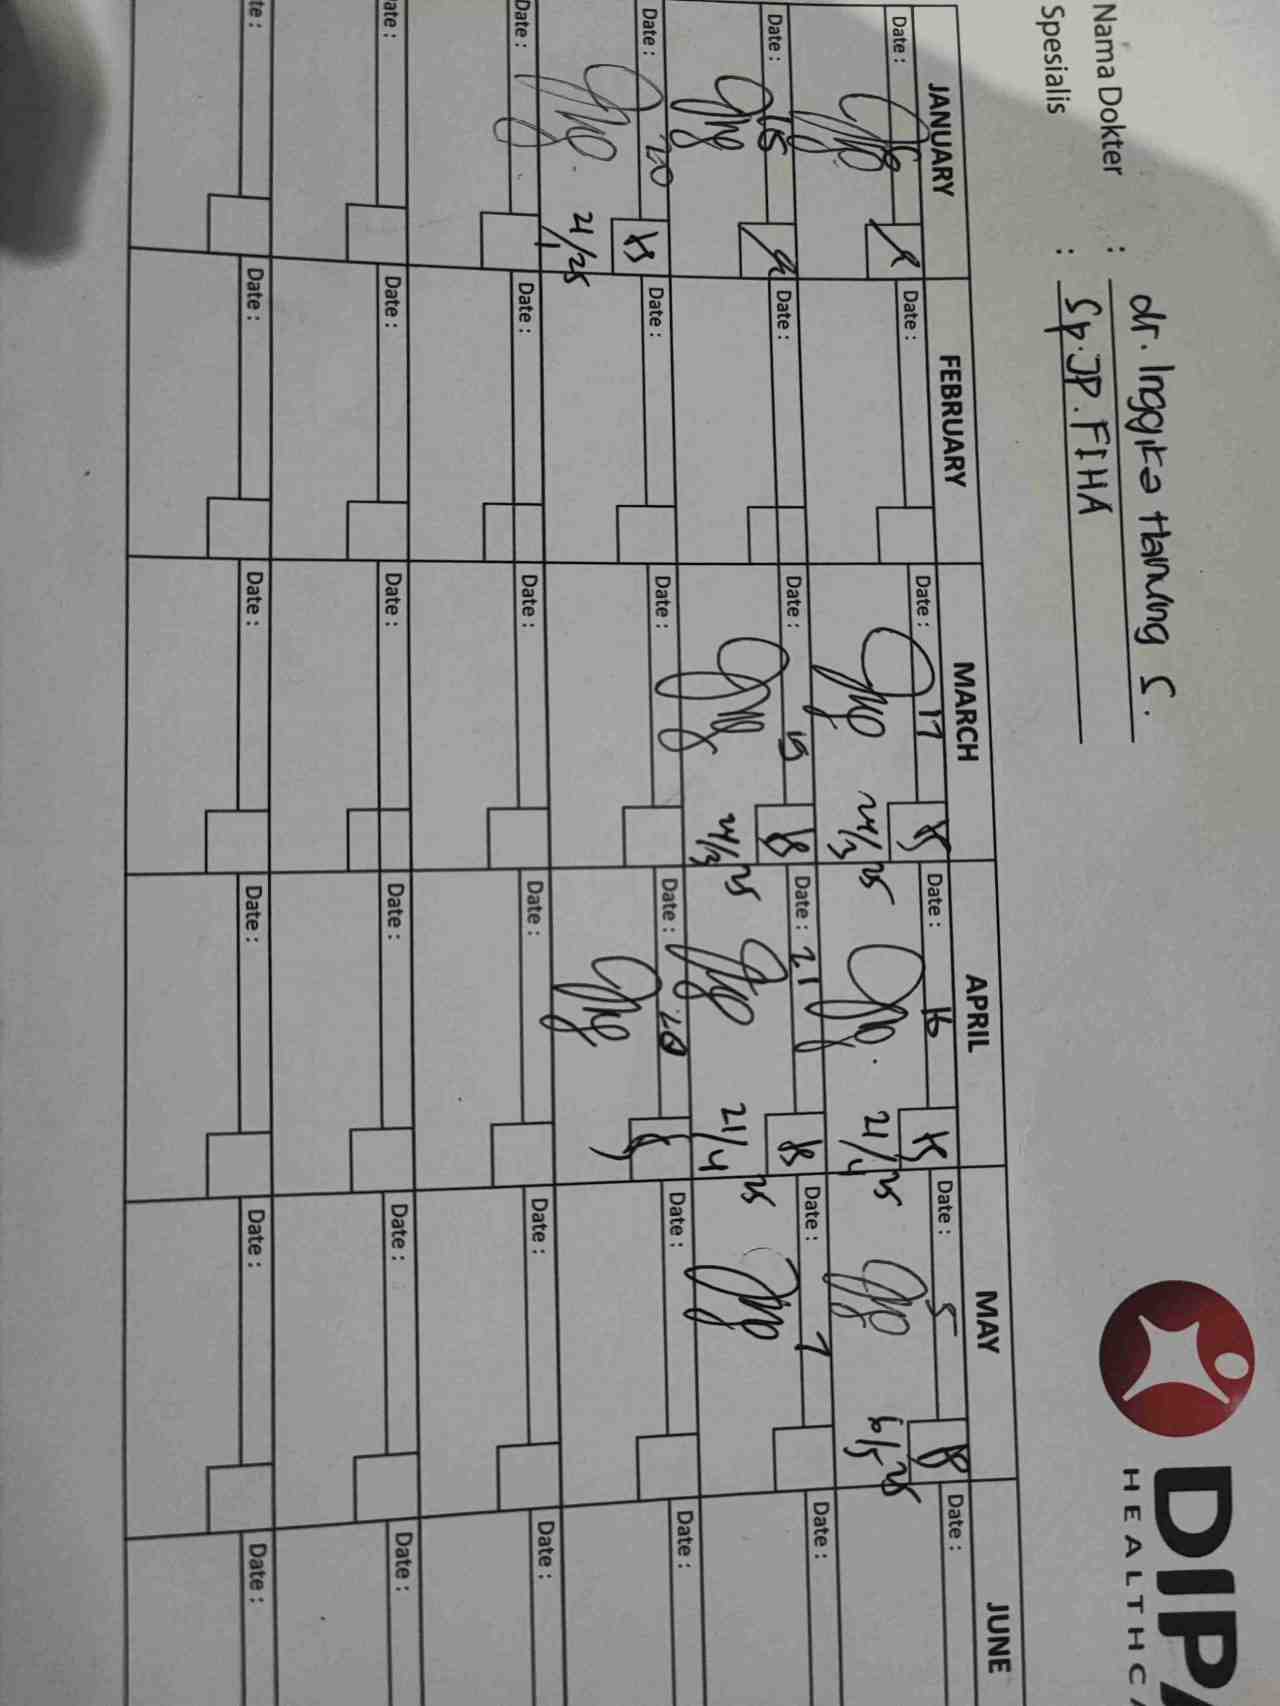 DIPA
HEALTHCA
Nama Dokter : dr. Inggita Hanung S.
Spesialis : Sp.JP.FIHA
JANUARY FEBRUARY MARCH APRIL MAY JUNE
Date : Date : Date : 17 Date : 16 Date : 5 Date :
24/3 25 21/4 25 6/5 25
Date : 15 Date : Date : 19 Date : 21 Date : 7 Date :
24/3 25 21/4 25
Date : 20 Date : Date : Date : 28 Date : Date :
21/1 25
Date : Date : Date : Date : Date : Date :
Date : Date : Date : Date : Date : Date :
te : Date : Date : Date : Date : Date :